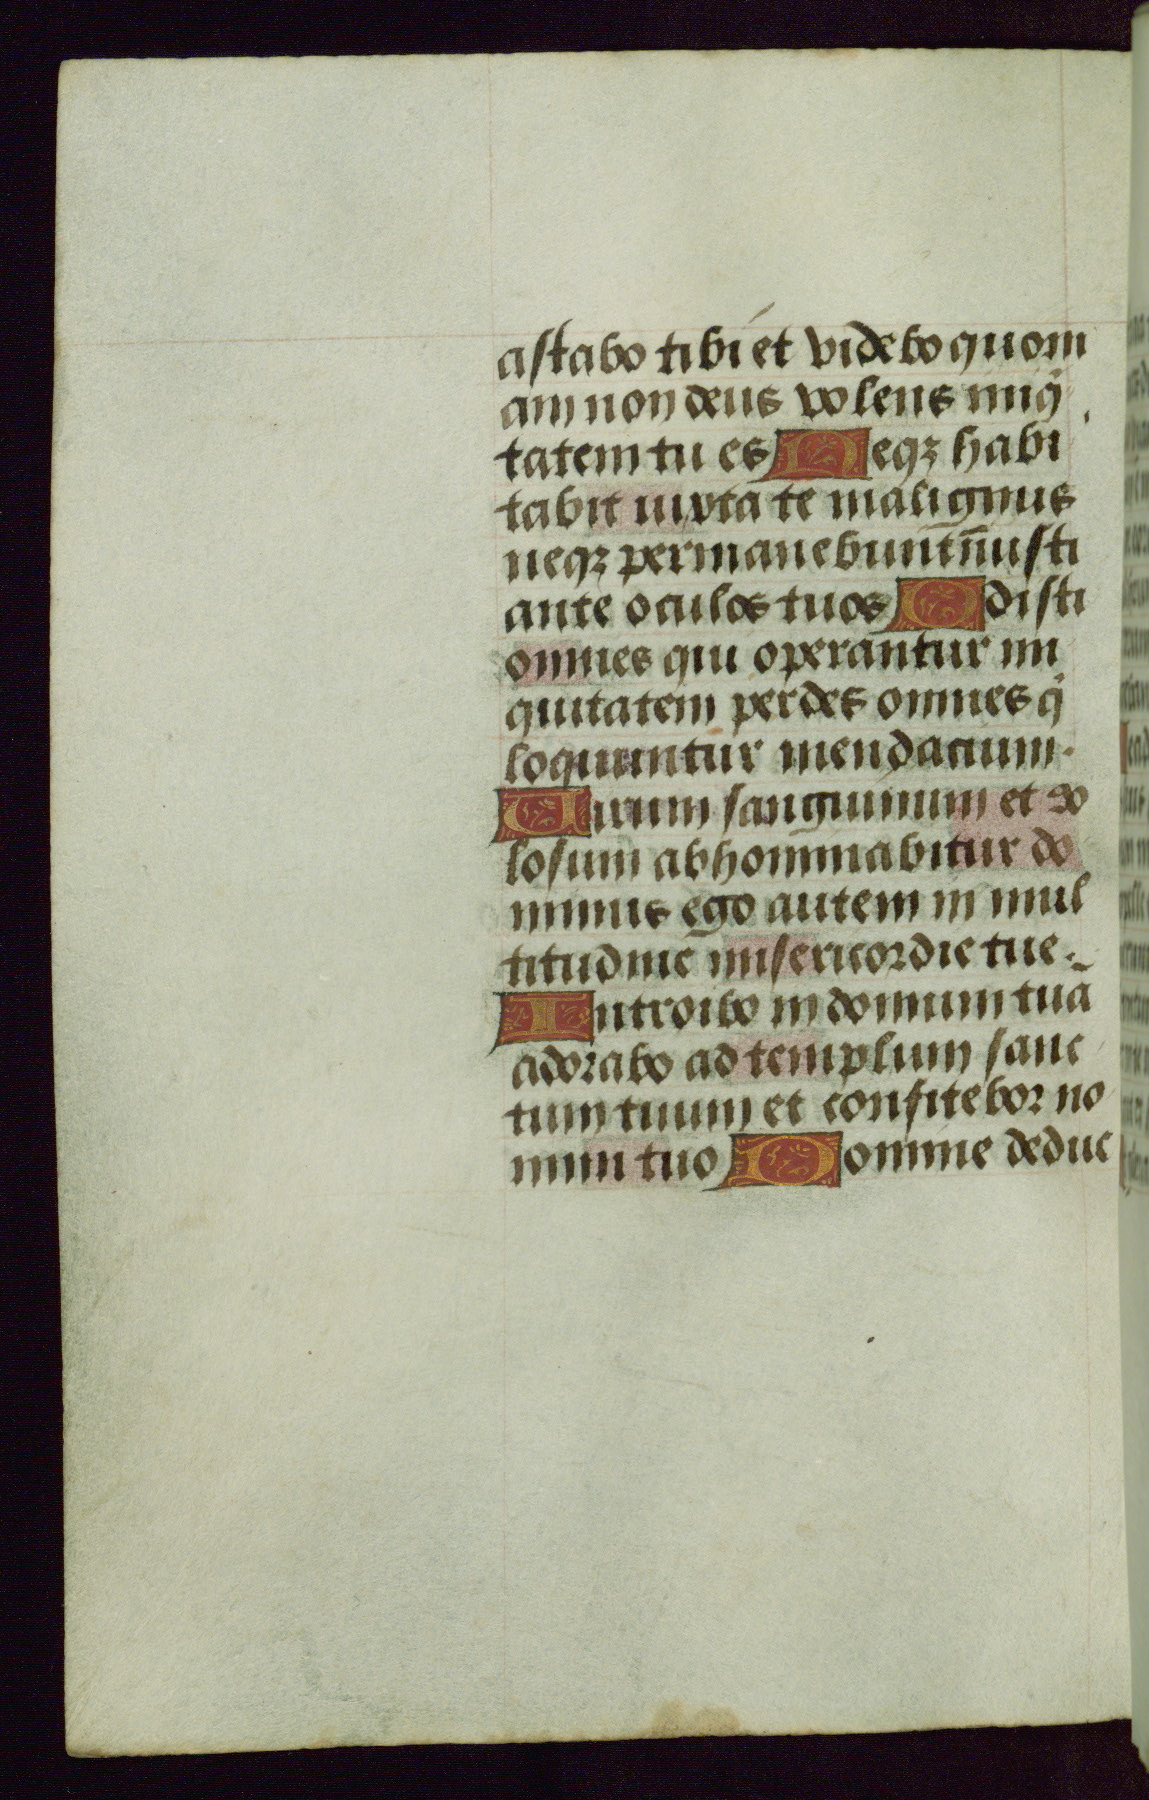 astabo tibi et videbo quoni
am non deus volens iniq̇
tatem tu es Neqꝫ habi
tabit iuxta te malignus
neqꝫ permanebunt iniusti
ante oculos tuos Odisti
omnes qui operantur ini
quitatem perdes omnes q̇
loquuntur mendacium.
Uirum sanguinum et do
losum abhominabitur do
minus ego autem in mul
titudine misericordie tue.
Introibo in domum tuā
adorabo ad templum sanc
tum tuum et confitebor no
mini tuo Domine deduc